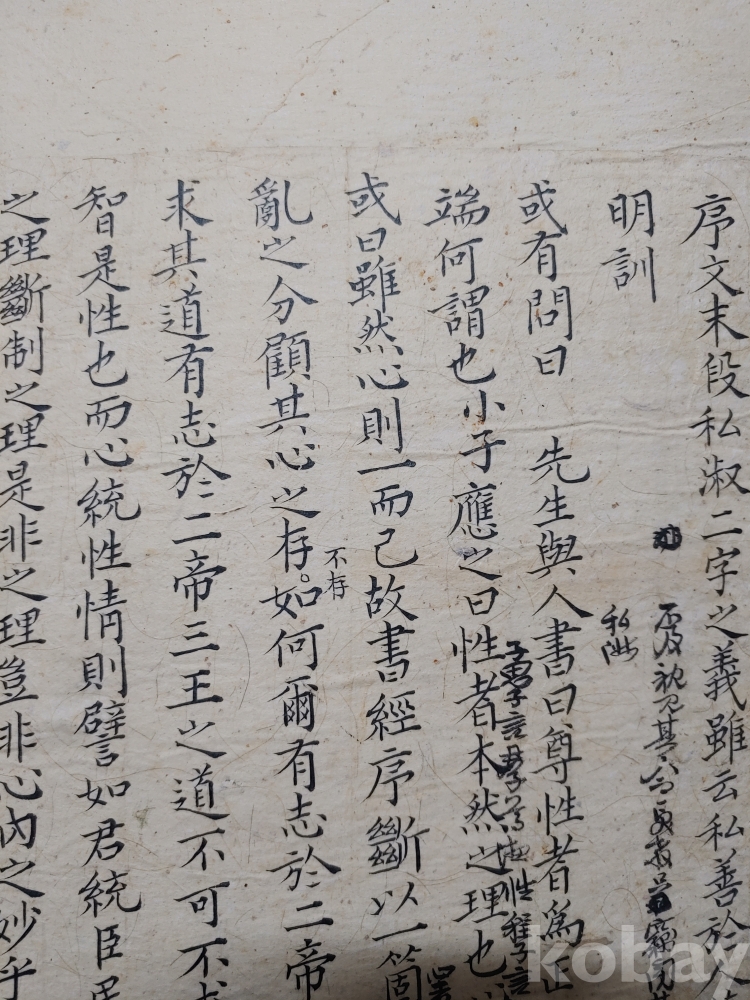 序文末段私淑二字之義雖云私善於人
明訓
或有問曰 先生與人書曰尊性者爲正
端何謂也小子應之曰性者本然之理也
或曰雖然心則一而已故書經序斷以一箇
亂之分顧其心之存不存如何爾有志於二帝
求其道有志於二帝三王之道不可不求
智是性也而心統性情則譬如君統臣民
之理斷制之理是非之理豈非心內之妙乎
kobay